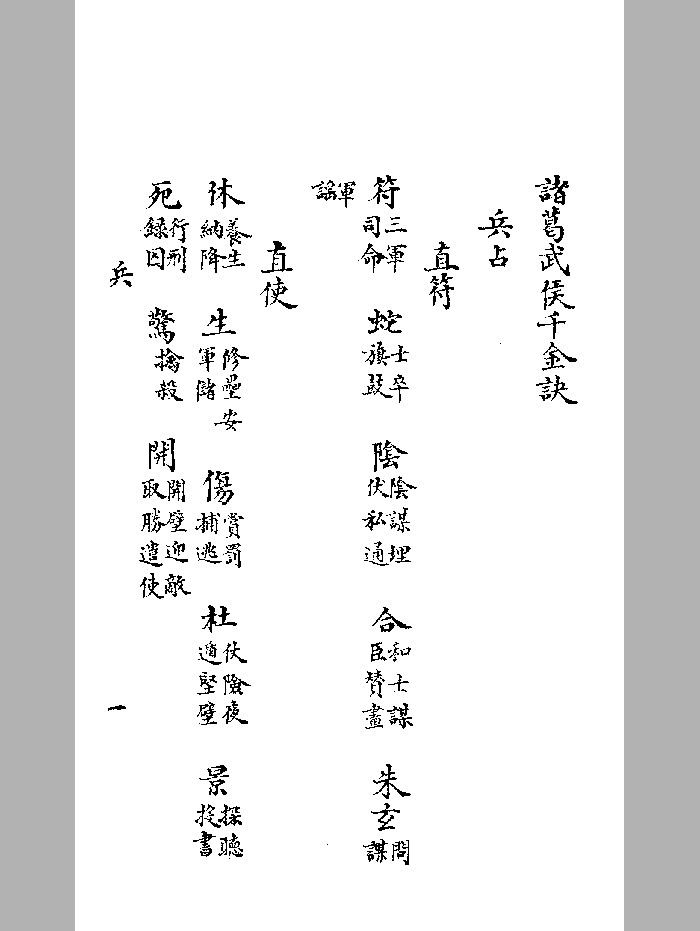 諸葛武侯千金訣
兵占
直符
符 三軍司命 蛇 士卒旗鼓 陰 陰謀埋伏私通 合 和士謀臣贊畫 朱玄 間謀
軍謡
直使
休 養生納降 生 修壘安軍儲 傷 賞罰捕逃 杜 伏險夜遁堅壁 景 探聽投書
死 行刑録囚 驚 擒殺 開 開壁迎敵取勝遣使
兵 一